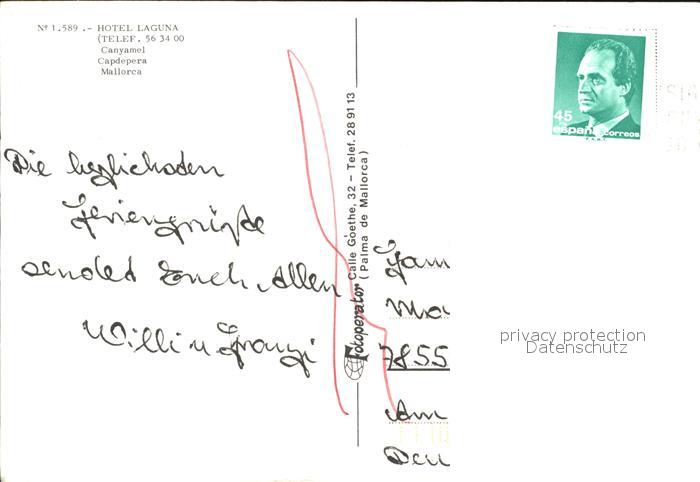 Nº 1.589 .- HOTEL LAGUNA
(TELEF. 56 34 00
Canyamel
Capdepera
Mallorca
Die herzlichsten
Feriengrüße
sendet Euch Allen
Willi u Franzi
Fotoperator Calle Goethe, 32 - Telef. 28 91 13
(Palma de Mallorca)
45
españa correos
Fam
7855
Am
privacy protection
Datenschutz